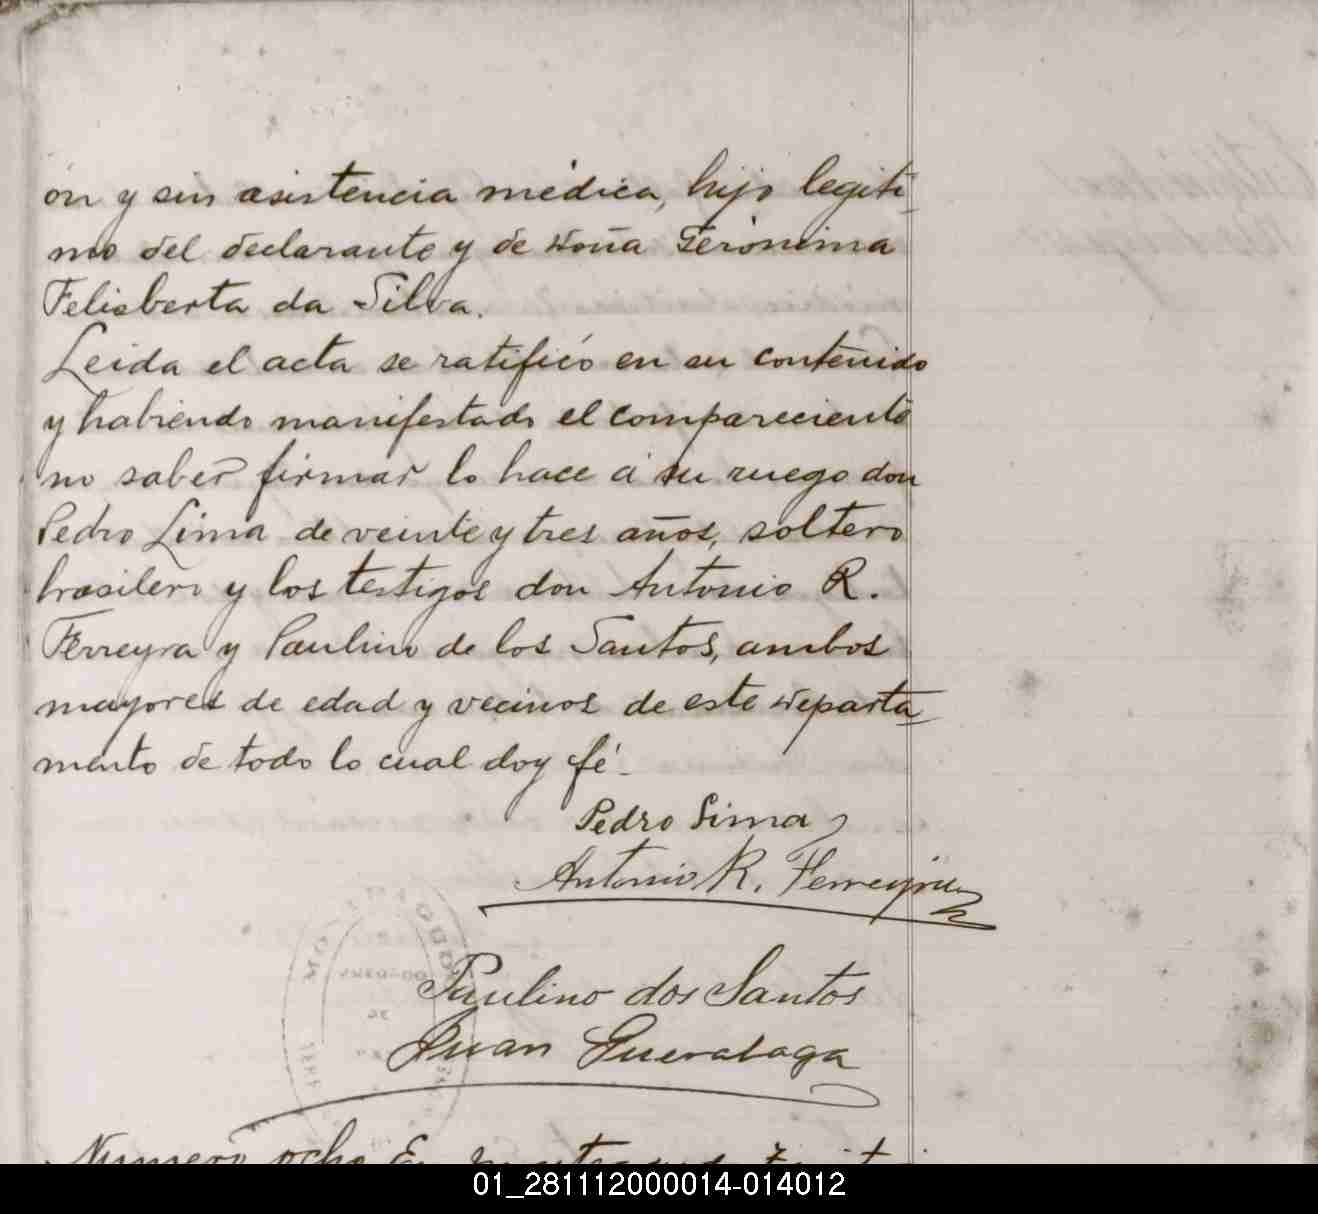 ón y sin asistencia médica, hijo legiti-
mo del declarante y de doña Gerónima
Felisberta da Silva.
Leida el acta se ratificó en su contenido
y habiendo manifestado el compareciente
no saber firmar lo hace á su ruego don
Pedro Lima de veinte y tres años, soltero
brasilero y los testigos don Antonio R.
Ferreyra y Paulino de los Santos, ambos
mayores de edad y vecinos de este departa-
mento de todo lo cual doy fé-
Pedro Lima
Antonio R. Ferreyra
Paulino dos Santos
Juan
Numero ocho En
01_281112000014-014012